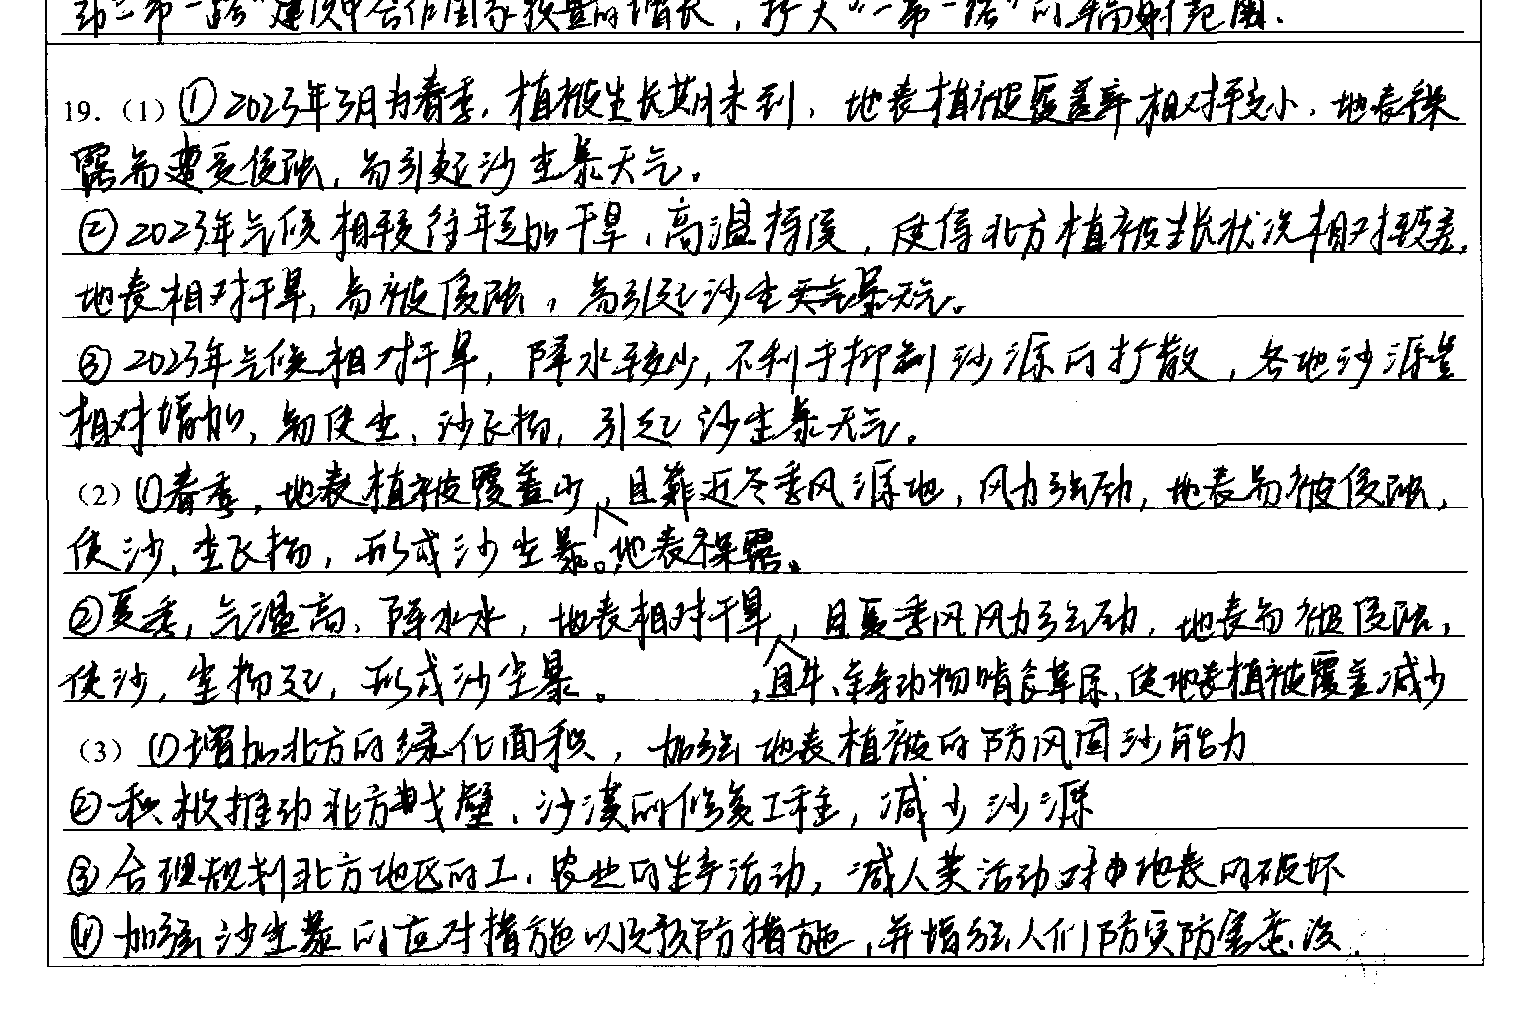 "一带一路"建设中合作国家数量的增长，扩大"一带一路"的辐射范围.
19.（1）①2023年3月为春季，植被生长期未到，地表植被覆盖率相对较小，地表裸
露易遭受侵蚀，易引起沙尘暴天气。
②2023年气候相较往年更加干旱、高温持续，使得北方植被生长状况相对较差，
地表相对干旱，易被侵蚀，易引起沙尘暴天气。
③2023年气候相对干旱，降水较少，不利于抑制沙源的扩散，各地沙源量
相对增加，易使尘、沙飞扬，引起沙尘暴天气。
（2）①春季，地表植被覆盖少，且靠近冬季风源地，风力强劲，地表易被侵蚀，
使沙、尘飞扬，形成沙尘暴。地表裸露。
②夏季，气温高、降水少，地表相对干旱，且夏季风风力强劲，地表易被侵蚀，
使沙，尘扬起，形成沙尘暴。，且牛、羊等动物啃食草原，使地表植被覆盖减少
（3）①增加北方的绿化面积，加强地表植被的防风固沙能力
②积极推动北方戈壁、沙漠的修复工程，减少沙源
③合理规划北方地区的工、农业的生产活动，减人类活动对地表的破坏
④加强沙尘暴的应对措施以及预防措施，并增强人们防灾防害意识.